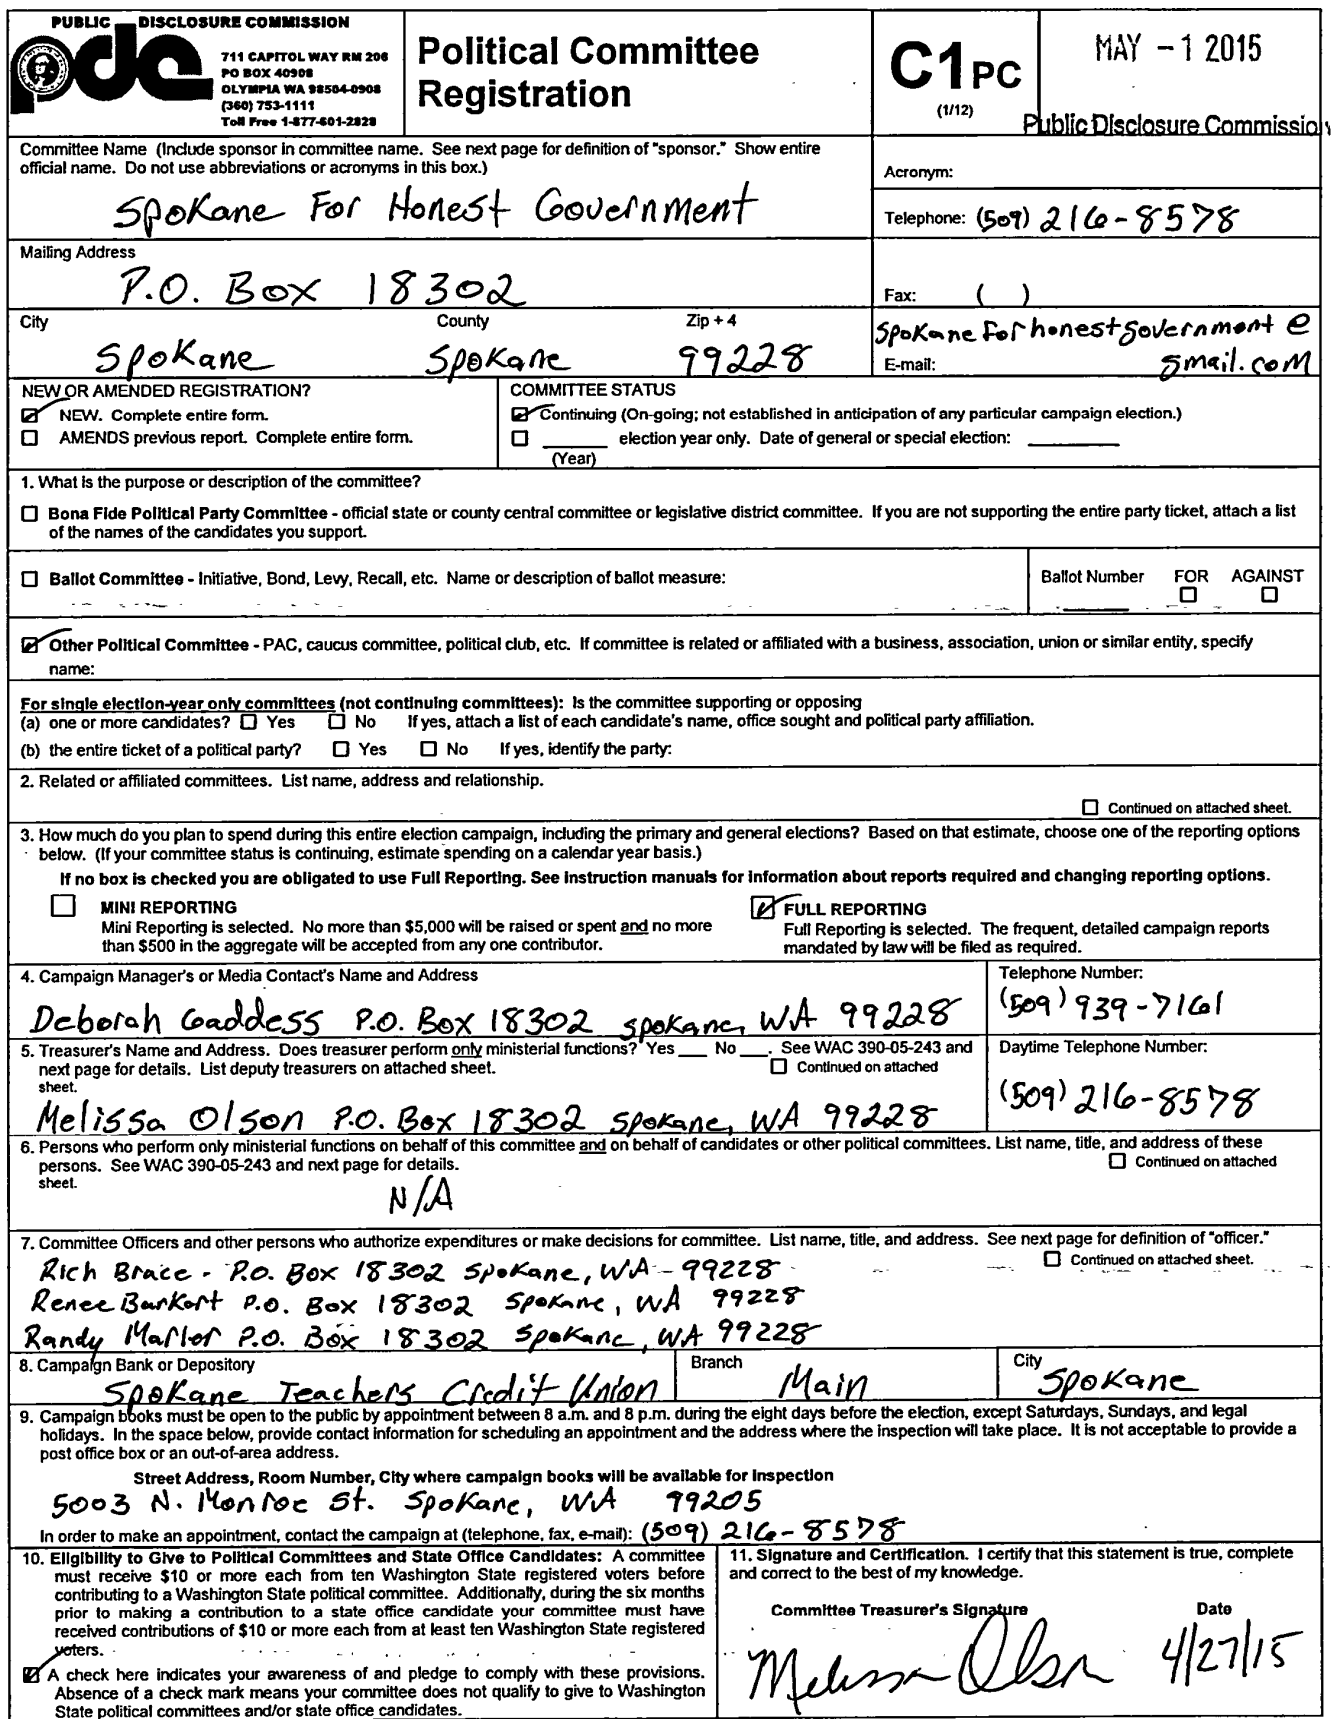 PUBLIC DISCLOSURE COMMISSION
pdc
711 CAPITOL WAY RM 206
PO BOX 40908
OLYMPIA WA 98504-0908
(360) 753-1111
Toll Free 1-877-601-2828
Political Committee
Registration
C1PC
(1/12)
MAY - 1 2015
Public Disclosure Commission
Committee Name (Include sponsor in committee name. See next page for definition of "sponsor." Show entire
official name. Do not use abbreviations or acronyms in this box.)
Spokane For Honest Government
Acronym:
Telephone: (509) 216-8578
Mailing Address
P.O. Box 18302
Fax: ( )
City County Zip + 4
Spokane Spokane 99228
spokaneforhonestgovernment@
E-mail: gmail.com
NEW OR AMENDED REGISTRATION?
NEW. Complete entire form.
AMENDS previous report. Complete entire form.
COMMITTEE STATUS
Continuing (On-going; not established in anticipation of any particular campaign election.)
______ election year only. Date of general or special election: ________
(Year)
1. What is the purpose or description of the committee?
Bona Fide Political Party Committee - official state or county central committee or legislative district committee. If you are not supporting the entire party ticket, attach a list
of the names of the candidates you support.
Ballot Committee - Initiative, Bond, Levy, Recall, etc. Name or description of ballot measure:
Ballot Number FOR AGAINST
Other Political Committee - PAC, caucus committee, political club, etc. If committee is related or affiliated with a business, association, union or similar entity, specify
name:
For single election-year only committees (not continuing committees): Is the committee supporting or opposing
(a) one or more candidates? Yes No If yes, attach a list of each candidate's name, office sought and political party affiliation.
(b) the entire ticket of a political party? Yes No If yes, identify the party:
2. Related or affiliated committees. List name, address and relationship.
Continued on attached sheet.
3. How much do you plan to spend during this entire election campaign, including the primary and general elections? Based on that estimate, choose one of the reporting options
below. (If your committee status is continuing, estimate spending on a calendar year basis.)
If no box is checked you are obligated to use Full Reporting. See instruction manuals for information about reports required and changing reporting options.
MINI REPORTING
Mini Reporting is selected. No more than $5,000 will be raised or spent and no more
than $500 in the aggregate will be accepted from any one contributor.
FULL REPORTING
Full Reporting is selected. The frequent, detailed campaign reports
mandated by law will be filed as required.
4. Campaign Manager's or Media Contact's Name and Address
Deborah Gaddess P.O. Box 18302 Spokane, WA 99228
Telephone Number:
(509) 939-7161
5. Treasurer's Name and Address. Does treasurer perform only ministerial functions? Yes ___ No ___. See WAC 390-05-243 and
next page for details. List deputy treasurers on attached sheet. Continued on attached
sheet.
Melissa Olson P.O. Box 18302 Spokane, WA 99228
Daytime Telephone Number:
(509) 216-8578
6. Persons who perform only ministerial functions on behalf of this committee and on behalf of candidates or other political committees. List name, title, and address of these
persons. See WAC 390-05-243 and next page for details. Continued on attached
sheet.
N/A
7. Committee Officers and other persons who authorize expenditures or make decisions for committee. List name, title, and address. See next page for definition of "officer."
Continued on attached sheet.
Rich Brace - P.O. Box 18302 Spokane, WA - 99228
Renee Barkort P.O. Box 18302 Spokane, WA 99228
Randy Marler P.O. Box 18302 Spokane, WA 99228
8. Campaign Bank or Depository
Spokane Teachers Credit Union
Branch
Main
City
Spokane
9. Campaign books must be open to the public by appointment between 8 a.m. and 8 p.m. during the eight days before the election, except Saturdays, Sundays, and legal
holidays. In the space below, provide contact information for scheduling an appointment and the address where the inspection will take place. It is not acceptable to provide a
post office box or an out-of-area address.
Street Address, Room Number, City where campaign books will be available for inspection
5003 N. Monroe St. Spokane, WA 99205
In order to make an appointment, contact the campaign at (telephone, fax, e-mail): (509) 216-8578
10. Eligibility to Give to Political Committees and State Office Candidates: A committee
must receive $10 or more each from ten Washington State registered voters before
contributing to a Washington State political committee. Additionally, during the six months
prior to making a contribution to a state office candidate your committee must have
received contributions of $10 or more each from at least ten Washington State registered
voters.
A check here indicates your awareness of and pledge to comply with these provisions.
Absence of a check mark means your committee does not qualify to give to Washington
State political committees and/or state office candidates.
11. Signature and Certification. I certify that this statement is true, complete
and correct to the best of my knowledge.
Committee Treasurer's Signature Date
Melissa Olson 4/27/15